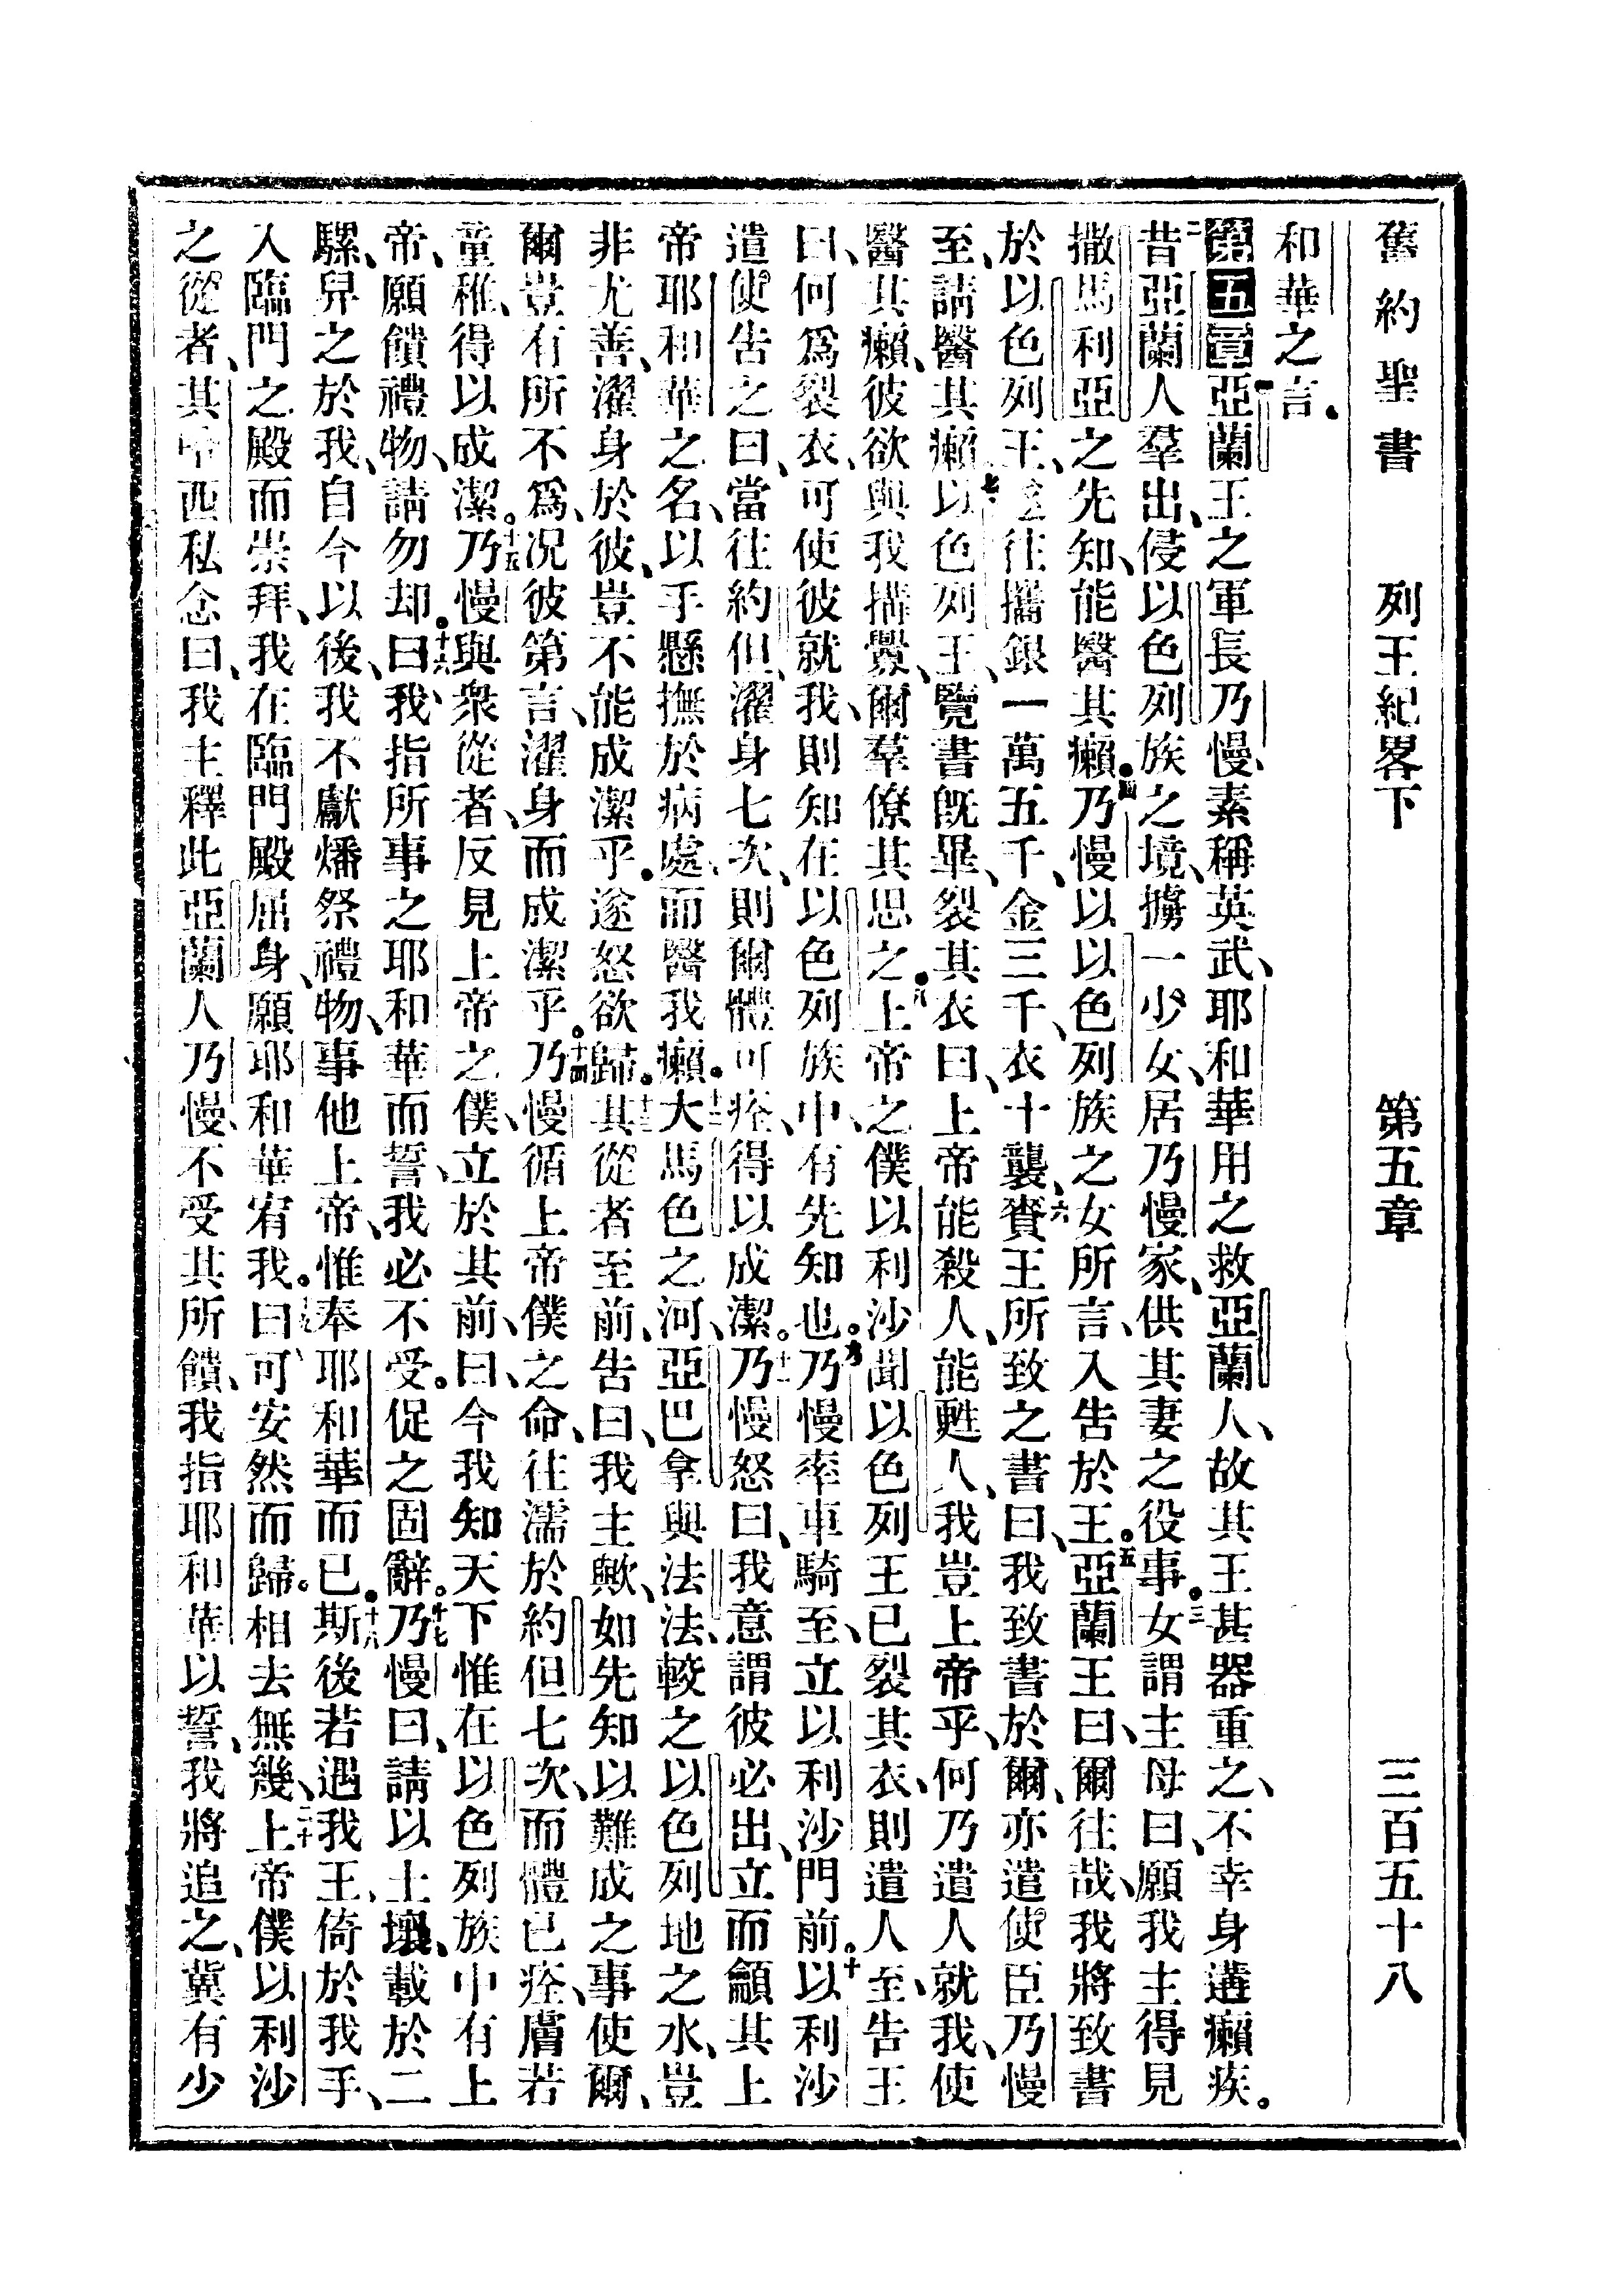 舊約聖書 列王紀畧下 第五章 三百五十八
和華之言。
第五章 一亞蘭王之軍長乃慢、素稱英武、耶和華用之救亞蘭人、故其王甚器重之、不幸身遘癩疾。
二昔亞蘭人羣出、侵以色列族之境、擄一少女、居乃慢家、供其妻之役事。三女謂主母曰、願我主得見
撒馬利亞之先知、能醫其癩。四乃慢以以色列族之女所言、入告於王。五亞蘭王曰、爾往哉、我將致書
於以色列王、遂往、攜銀一萬五千、金三千、衣十襲、六賷王所致之書曰、我致書於爾、亦遣使臣乃慢
至、請醫其癩。七以色列王、覽書旣畢、裂其衣曰、上帝能殺人、能甦人、我豈上帝乎、何乃遣人就我、使
醫其癩、彼欲與我搆釁、爾羣僚其思之。八上帝之僕以利沙聞以色列王已裂其衣、則遣人至、告王
曰、何爲裂衣、可使彼就我、則知在以色列族中、有先知也。九乃慢率車騎至、立以利沙門前。十以利沙
遣使告之曰、當往約但、濯身七次、則爾體可痊、得以成潔。十一乃慢怒曰、我意謂彼必出、立而籲其上
帝耶和華之名、以手懸撫於病處、而醫我癩。十二大馬色之河、亞巴拿與法法、較之以色列地之水、豈
非尤善、濯身於彼、豈不能成潔乎。遂怒欲歸。十三其從者至前、告曰、我主歟、如先知以難成之事使爾、
爾豈有所不爲、况彼第言、濯身而成潔乎。十四乃慢循上帝僕之命、往濡於約但七次、而體已痊、膚若
童稚、得以成潔。十五乃慢與衆從者、反見上帝之僕、立於其前、曰、今我知天下惟在以色列族中有上
帝、願饋禮物、請勿却。十六曰、我指所事之耶和華而誓、我必不受。促之固辭。十七乃慢曰、請以土壤、載於二
騾、畀之於我、自今以後、我不獻燔祭禮物、事他上帝、惟奉耶和華而已。十八斯後若遇我王、倚於我手、
入臨門之殿而崇拜、我在臨門殿屈身、願耶和華宥我。十九曰、可安然而歸。相去無幾、二十上帝僕以利沙
之從者、其哈西私念曰、我主釋此亞蘭人乃慢、不受其所饋、我指耶和華以誓、我將追之、冀有少